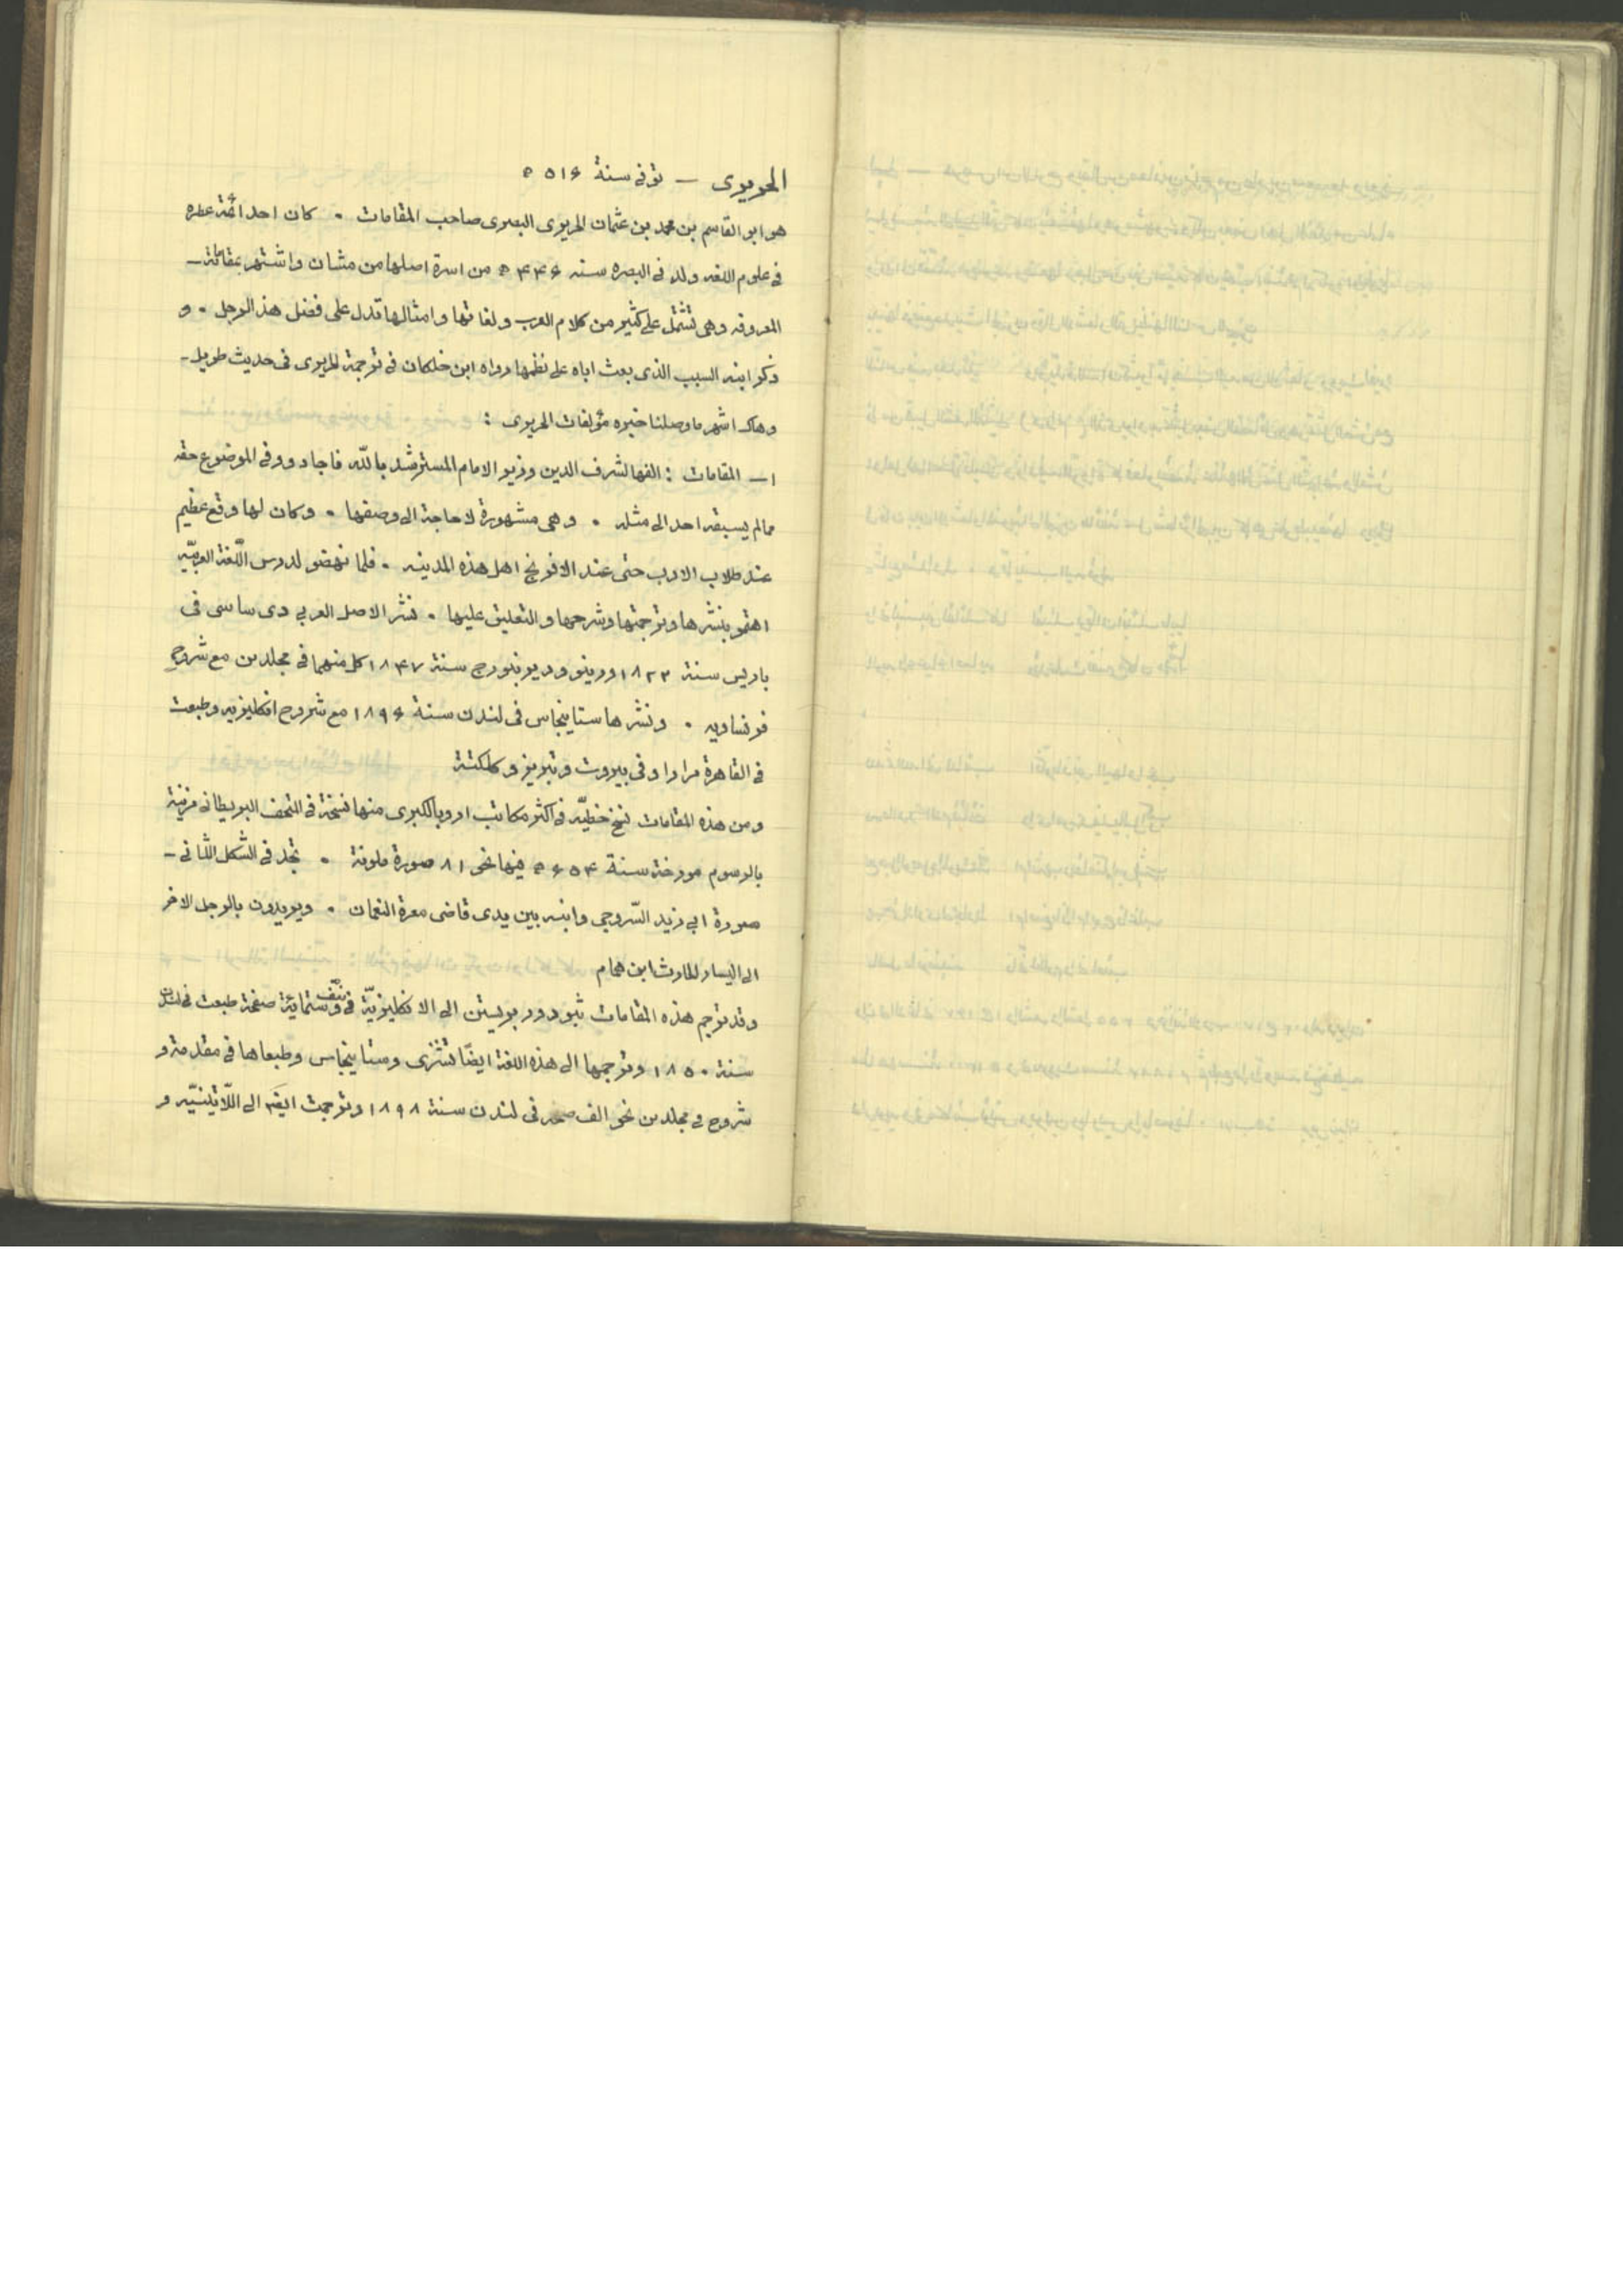 الحريرى — توفى سنة ۵۱۶ ه
هو ابو القاسم بن محمد بن عثمان الحريرى البصرى صاحب المقامات ۰ كان احد ائمة عصره
فى علوم اللغه ولد فى البصره سنه ۴۴۶ ه من اسرة اصلها من مشان واشتهر بمقاماته —
المعروفه وهى تشتمل على كثير من كلام العرب ولغاتها وامثالها تدل على فضل هذ الرجل ۰ و
ذكر ابنه السبب الذى بعث اباه على نظمها رواه ابن خلكان فى ترجمة الحريرى فى حديث طويل —
وهاك اشهر ما وصلنا خبره مؤلفات الحريرى :
۱ — المقامات : الفها لشرف الدين وزير الامام المسترشد بالله فاجاد ووفى الموضوع حقه
مما لم يسبقه احد الى مثله ۰ وهى مشهورة لا حاجة الى وصفها ۰ وكان لها وقع عظيم
عند طلاب الادب حتى عند الافرنج اهل هذه المدنيه ۰ فلما نهضو لدرس اللّغة العربيّه
اهتمو بنشرها وترجمتها وشرحها والتعليق عليها ۰ نشر الاصل العربي دى ساسى فى
باريس سنة ۱۸۲۲ ورينو وديرنبورج سنة ۱۸۴۷ كل منهما فى مجلدين مع شروح
فرنساويه ۰ ونشرها ستاينجاس فى لندن سنة ۱۸۹۶ مع شروح انكليزيه وطبعت
فى القاهرة مرارا وفى بيروت وتبريز وكلكتة
ومن هذه المقامات نسخ خطيّه فى اكثر مكاتب اروبا الكبرى منها نسخة فى المتحف البريطانى مزينة
بالرسوم مورخة سنة ۶۵۴ ه فيها نحو ۸۱ صورة ملونة ۰ تجد فى الشّكل الثّانى —
صورة ابى زيد السّروجى وابنه بين يدى قاضى معرة النعمان ۰ ويريدون بالرجل الاخر
الى اليسار الحارث ابن همام
وقد ترجم هذه المقامات ثيودور بريستن الى الانكليزيّة فى ونيّف ستمائة صفحة طبعت فى لندن
سنة ۱۸۵۰ وترجمها الى هذه اللغة ايضًا تشنرى وستاينجاس وطبعاها فى مقدمة و
شروح فى مجلدين نحو الف صحه فى لندن سنة ۱۸۹۸ وترجمت ايضًا الى اللّاتينيّه و